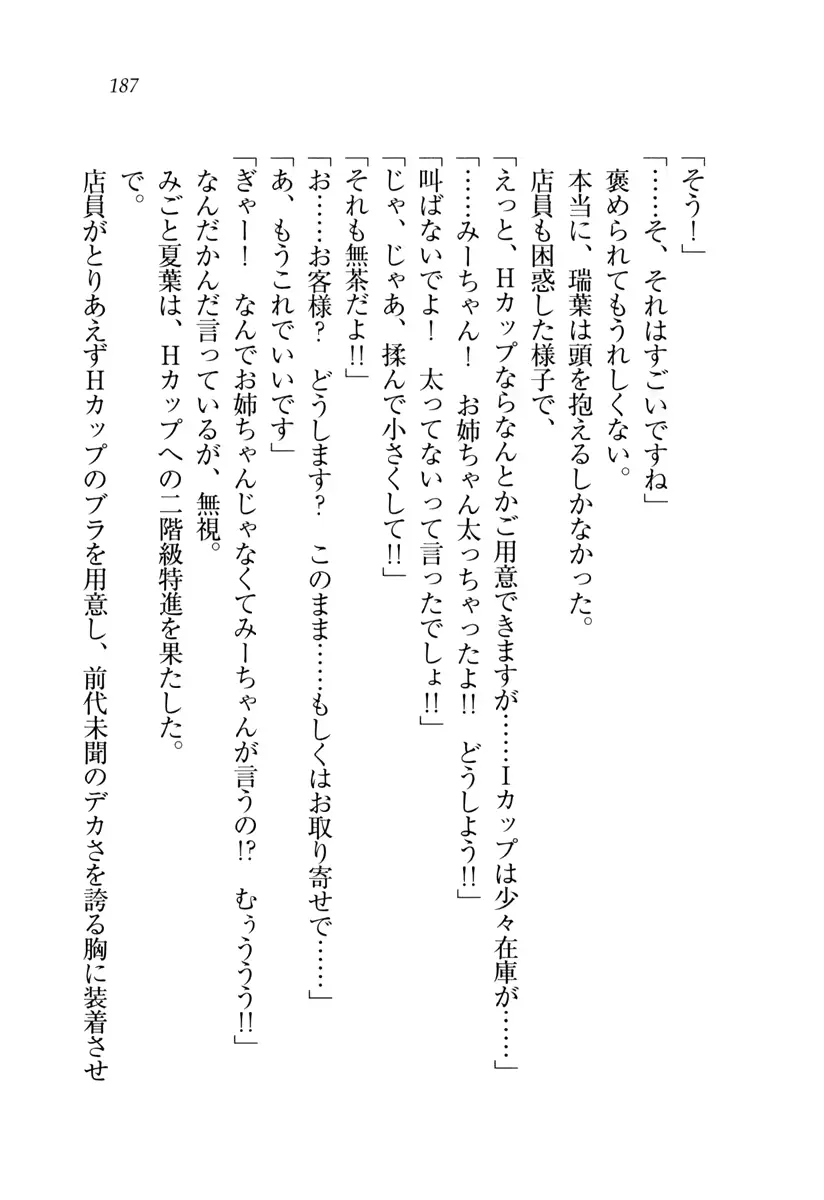 187
「そう！」
「……そ、それはすごいですね」
褒められてもうれしくない。
本当に、瑞葉は頭を抱えるしかなかった。
店員も困惑した様子で、
「えっと、Ｈカップならなんとかご用意できますが……Ｉカップは少々在庫が……」
「……みーちゃん！　お姉ちゃん太っちゃったよ!!　どうしよう!!」
「叫ばないでよ！　太ってないって言ったでしょ!!」
「じゃ、じゃあ、揉んで小さくして!!」
「それも無茶だよ!!」
「お……お客様？　どうします？　このまま……もしくはお取り寄せで……」
「あ、もうこれでいいです」
「ぎゃー！　なんでお姉ちゃんじゃなくてみーちゃんが言うの!?　むぅううう!!」
なんだかんだ言っているが、無視。
みごと夏葉は、Ｈカップへの二階級特進を果たした。
で。
店員がとりあえずＨカップのブラを用意し、前代未聞のデカさを誇る胸に装着させ